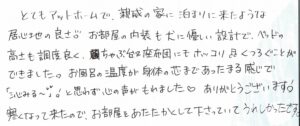 とてもアットホームで、親戚の家に泊まりに来たような
居心地の良さ♪ お部屋の内装も木に優しい設計で、ベッドの
高さも調度良く、ちゃぶ台と座布団にもホッコリ♪くつろぐことが
できました。お風呂の温度が身体の芯まであったまる感じで
「沁みる〜」と思わず心の声がもれました♡ ありがとうございます!
寒くなって来たので、お部屋もあたたかとして下さっていてうれしかったデス。